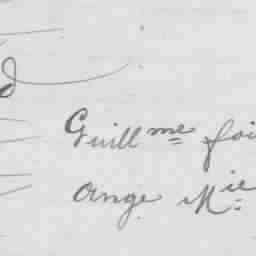 Guill me foi
Ange Mie